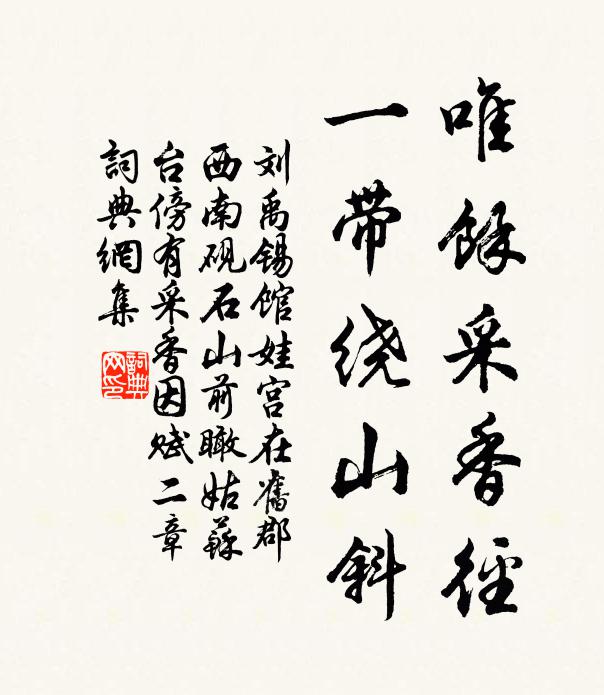 唯馀采香径
一带绕山斜
刘禹锡馆娃宫在旧郡
西南砚石山前瞰姑苏
台傍有采香因赋二章
詞典網集
詞典网印